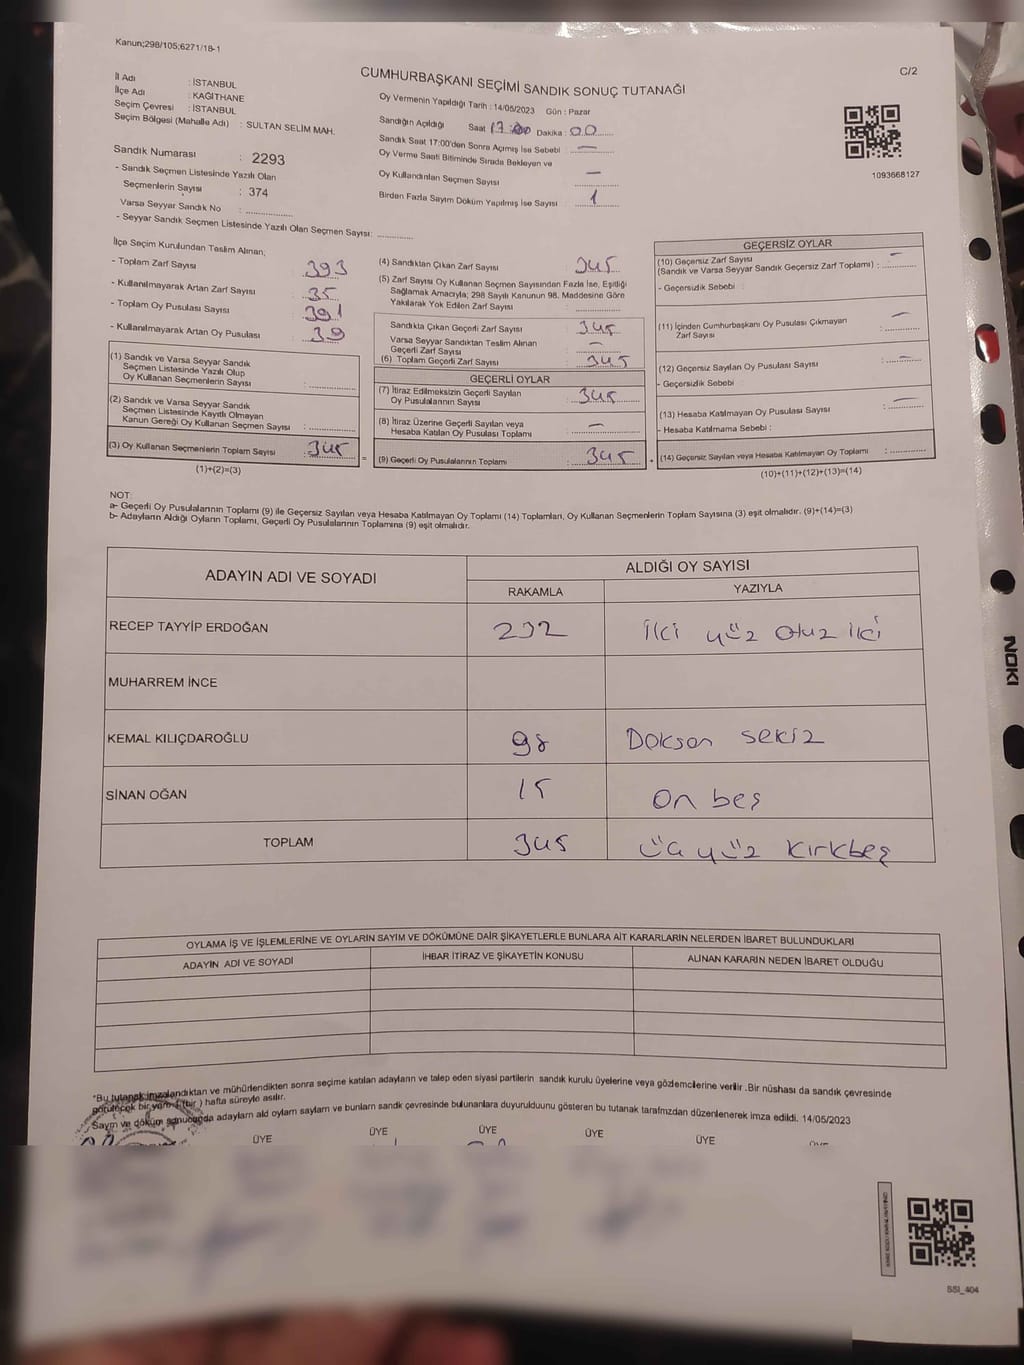 Kanun;298/105;6271/18-1
C/2
CUMHURBAŞKANI SEÇİMİ SANDIK SONUÇ TUTANAĞI
İl Adı : İSTANBUL
İlçe Adı : KAĞITHANE
Seçim Çevresi : İSTANBUL
Seçim Bölgesi (Mahalle Adı) : SULTAN SELİM MAH.
Sandık Numarası : 2293
- Sandık Seçmen Listesinde Yazılı Olan
Seçmenlerin Sayısı : 374
Varsa Seyyar Sandık No : ..............
- Seyyar Sandık Seçmen Listesinde Yazılı Olan Seçmen Sayısı: ............
Oy Vermenin Yapıldığı Tarih : 14/05/2023 Gün : Pazar
Sandığın Açıldığı Saat 17:00 Dakika : 00
Sandık Saat 17:00'den Sonra Açılmış İse Sebebi : —
Oy Verme Saati Bitiminde Sırada Bekleyen ve
Oy Kullandırılan Seçmen Sayısı —
Birden Fazla Sayım Döküm Yapılmış İse Sayısı : 1
1093668127
İlçe Seçim Kurulundan Teslim Alınan;
- Toplam Zarf Sayısı : 393
- Kullanılmayarak Artan Zarf Sayısı : 35
- Toplam Oy Pusulası Sayısı : 391
- Kullanılmayarak Artan Oy Pusulası : 39
(1) Sandık ve Varsa Seyyar Sandık
Seçmen Listesinde Yazılı Olup
Oy Kullanan Seçmenlerin Sayısı : ............
(2) Sandık ve Varsa Seyyar Sandık
Seçmen Listesinde Kayıtlı Olmayan
Kanun Gereği Oy Kullanan Seçmen Sayısı : ............
(3) Oy Kullanan Seçmenlerin Toplam Sayısı : 345
(1)+(2)=(3)
(4) Sandıktan Çıkan Zarf Sayısı : 345
(5) Zarf Sayısı Oy Kullanan Seçmen Sayısından Fazla İse, Eşitliği
Sağlamak Amacıyla; 298 Sayılı Kanunun 98. Maddesine Göre
Yakılarak Yok Edilen Zarf Sayısı : ............
Sandıkta Çıkan Geçerli Zarf Sayısı : 345
Varsa Seyyar Sandıktan Teslim Alınan
Geçerli Zarf Sayısı : —
(6) Toplam Geçerli Zarf Sayısı : 345
GEÇERLİ OYLAR
(7) İtiraz Edilmeksizin Geçerli Sayılan
Oy Pusulalarının Sayısı : 345
(8) İtiraz Üzerine Geçerli Sayılan veya
Hesaba Katılan Oy Pusulası Toplamı : —
(9) Geçerli Oy Pusulalarının Toplamı : 345
GEÇERSİZ OYLAR
(10) Geçersiz Zarf Sayısı —
(Sandık ve Varsa Seyyar Sandık Geçersiz Zarf Toplamı) : ............
- Geçersizlik Sebebi :
(11) İçinden Cumhurbaşkanı Oy Pusulası Çıkmayan
Zarf Sayısı : —
(12) Geçersiz Sayılan Oy Pusulası Sayısı : —
- Geçersizlik Sebebi :
(13) Hesaba Katılmayan Oy Pusulası Sayısı : —
- Hesaba Katılmama Sebebi :
(14) Geçersiz Sayılan veya Hesaba Katılmayan Oy Toplamı : ............
(10)+(11)+(12)+(13)=(14)
NOT:
a- Geçerli Oy Pusulalarının Toplamı (9) ile Geçersiz Sayılan veya Hesaba Katılmayan Oy Toplamı (14) Toplamları, Oy Kullanan Seçmenlerin Toplam Sayısına (3) eşit olmalıdır. (9)+(14)=(3)
b- Adayların Aldığı Oyların Toplamı, Geçerli Oy Pusulalarının Toplamına (9) eşit olmalıdır.
ADAYIN ADI VE SOYADI
ALDIĞI OY SAYISI
RAKAMLA YAZIYLA
RECEP TAYYİP ERDOĞAN 232 İki yüz otuz iki
MUHARREM İNCE
KEMAL KILIÇDAROĞLU 98 Doksan sekiz
SİNAN OĞAN 15 on beş
TOPLAM 345 üç yüz kırkbeş
OYLAMA İŞ VE İŞLEMLERİNE VE OYLARIN SAYIM VE DÖKÜMÜNE DAİR ŞİKAYETLERLE BUNLARA AİT KARARLARIN NELERDEN İBARET BULUNDUKLARI
ADAYIN ADI VE SOYADI İHBAR İTİRAZ VE ŞİKAYETİN KONUSU ALINAN KARARIN NEDEN İBARET OLDUĞU
*Bu tutanak imzalandıktan ve mühürlendikten sonra seçime katılan adayların ve talep eden siyasi partilerin sandık kurulu üyelerine veya gözlemcilerine verilir .Bir nüshası da sandık çevresinde
görülecek bir yere 1 (bir ) hafta süreyle asılır.
Sayım ve döküm sonucunda adayların aldı oyların sayıların ve bunların sandık çevresinde bulunanlara duyurulduunu gösteren bu tutanak tarafmzdan düzenlenerek imza edildi. 14/05/2023
ÜYE ÜYE ÜYE ÜYE ÜYE
SSI_404
NOKI